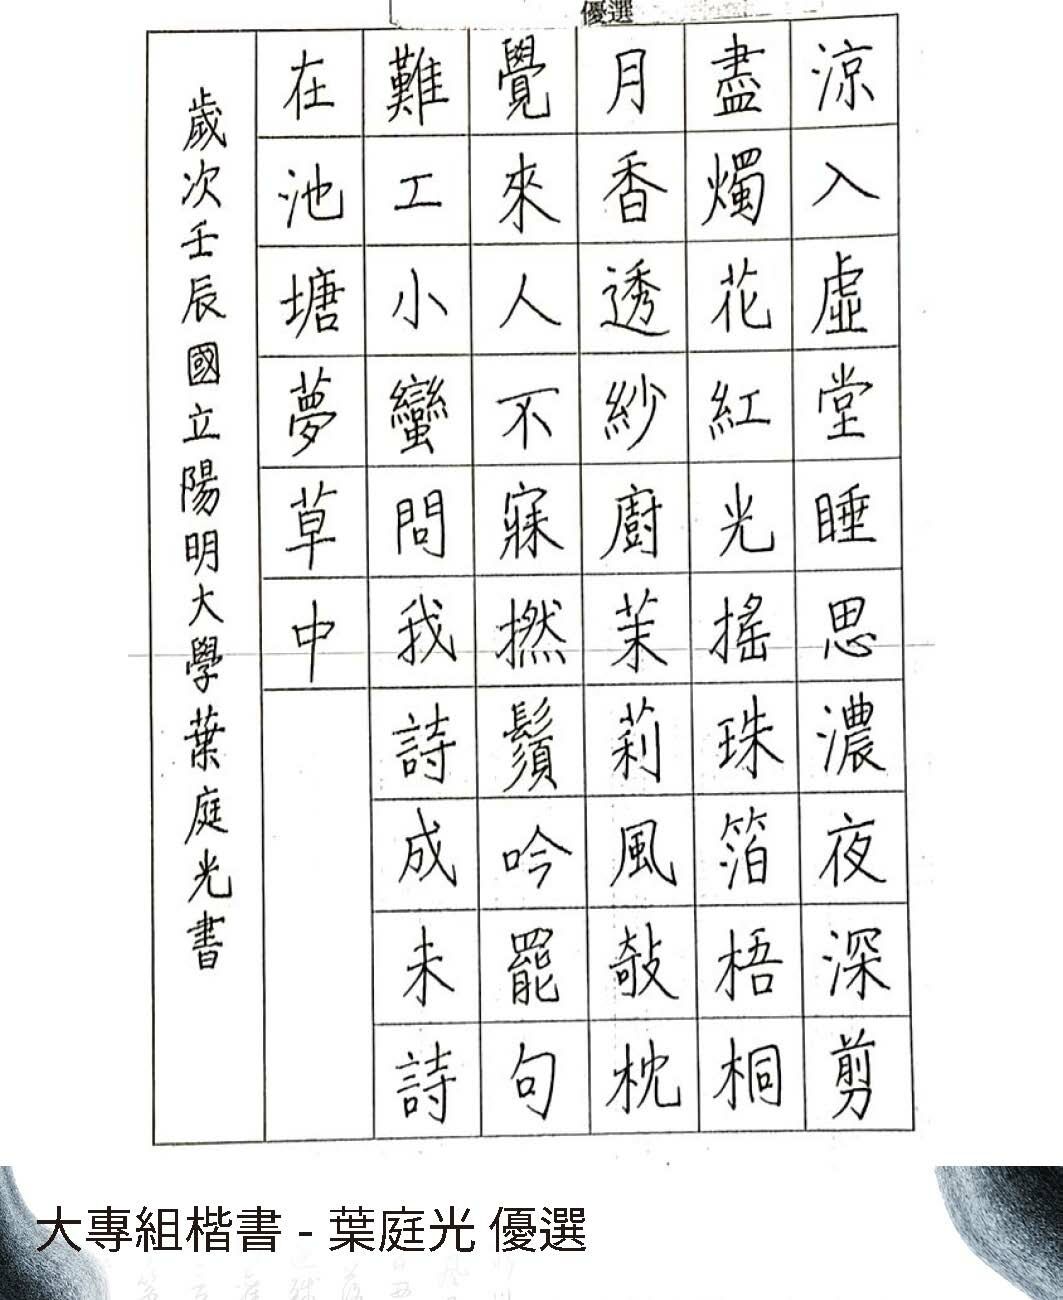 優選
涼入虛堂睡思濃夜深剪
盡燭花紅光搖珠箔梧桐
月香透紗廚茉莉風敲枕
覺來人不寐撚鬚吟罷句
難工小蠻問我詩成未詩
在池塘夢草中
歲次壬辰國立陽明大學葉庭光書
大專組楷書 - 葉庭光 優選